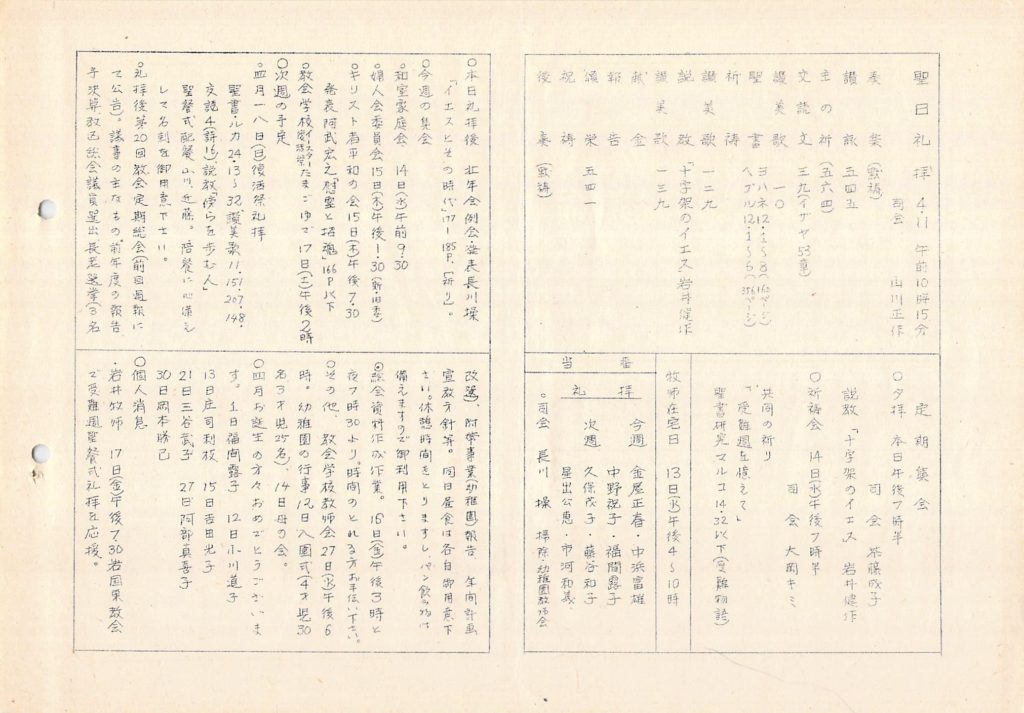 聖日礼拝 4.11 午前10時15分
司会 山川正作
奏楽 (黙祷)
讃詠 五四五
主の祈 (五六四)
交読文 三九(イザヤ53章)
讃美歌 一一〇
聖書 ヨハネ12・1〜8(160ページ)
ヘブル12・1〜6(356ページ)
祈祷
讃美歌 一二九
説教 「十字架のイエス」岩井健作
讃美歌 一三九
献金
報告
頌栄 五四一
祝祷
後奏 (黙祷)
定期集会
○夕拝 本日午後7時半
司会 斉藤成子
説教「十字架のイエス」 岩井健作
○祈祷会 14日(水)午後7時半
司会 大岡キミ
共同の祈り
「受難週を憶えて」
聖書研究マルコ14・32以下(受難物語)
牧師在宅日 13日(火)午後4〜10時
当番
礼拝
今週 金屋正春・中浜富雄
中野祝子・福間露子
次週 久保茂子・藤谷和子
星出公恵・市河和義
○司会 長川操 掃除 幼稚園教師会
○本日礼拝後 壮年会例会・発表長川操
「イエスとその時代」177-185P.「祈り」。
○今週の集会
・和室家庭会 14日(水)午前9・30
・婦人会委員会 15日(木)午後1・30(新・旧委)
・キリスト者平和の会 15日(木)午後7・30
発表阿武宏之「慰霊と招魂」166P以下
・教会学校イースターたまごゆで 17日(土)午後2時
○次週の予定
・四月一八日(日)復活祭礼拝
聖書・ルカ24・13〜32 讃美歌11・151・207・148・
交読4(詩16)、説教「傍らを歩む人」
聖餐式配餐 山川、近藤。陪餐に心備え
して名札を御用意下さい。
・礼拝後第20回教会定期総会(前回週報に
て公告)。議事の主なもの 前年度の報告
予決算教区総会議員選出長老選挙(3名
改選)、附帯事業(幼稚園)報告 年間計画
宣教方針等。同日昼食は各自御用意下
さい。休憩時間をとりますし、パン飲み物は
備えますので御利用下さい。
○総会資料作成作業。16日(金)午後3時と
夜7時30より。時間のとれる方お手伝い下さい。
○その他、教会学校教師会27日(火)午後6
時。幼稚園の行事12日入園式(4才児30
名3才児25名)、14日母の会。
○四月お誕生の方々おめでとうございま
す。1日福間露子 12日小川道子
13日庄司利枝 15日吉田光子
21日三谷武子 27日阿部真喜子
30日岡本勝己
○個人消息
・岩井牧師 17日(金)午後7・30岩国東教会
で受難週聖餐式礼拝を応援。